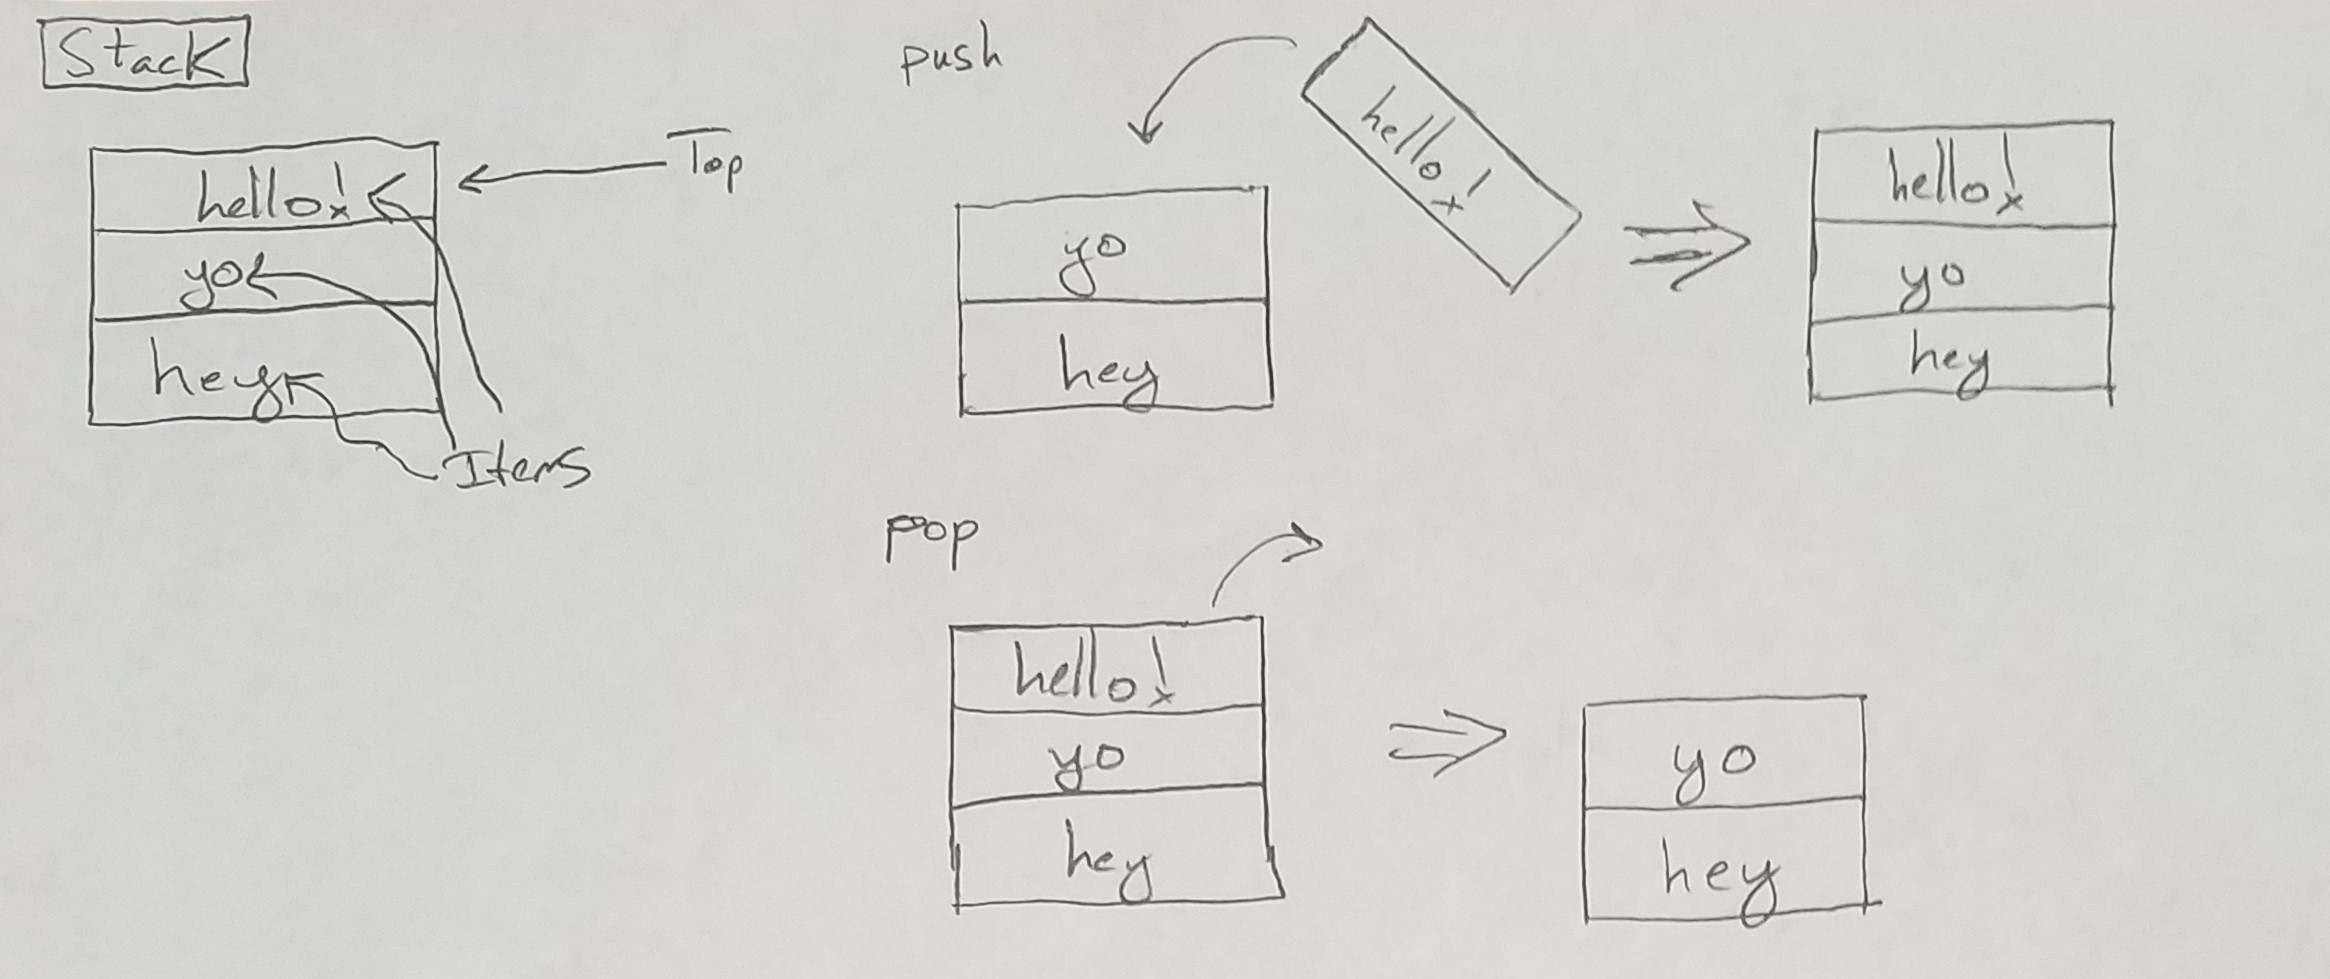 Stack
hello!
yo
hey
Top
Items
push
hello!
yo
hey
hello!
yo
hey
pop
hello!
yo
hey
yo
hey